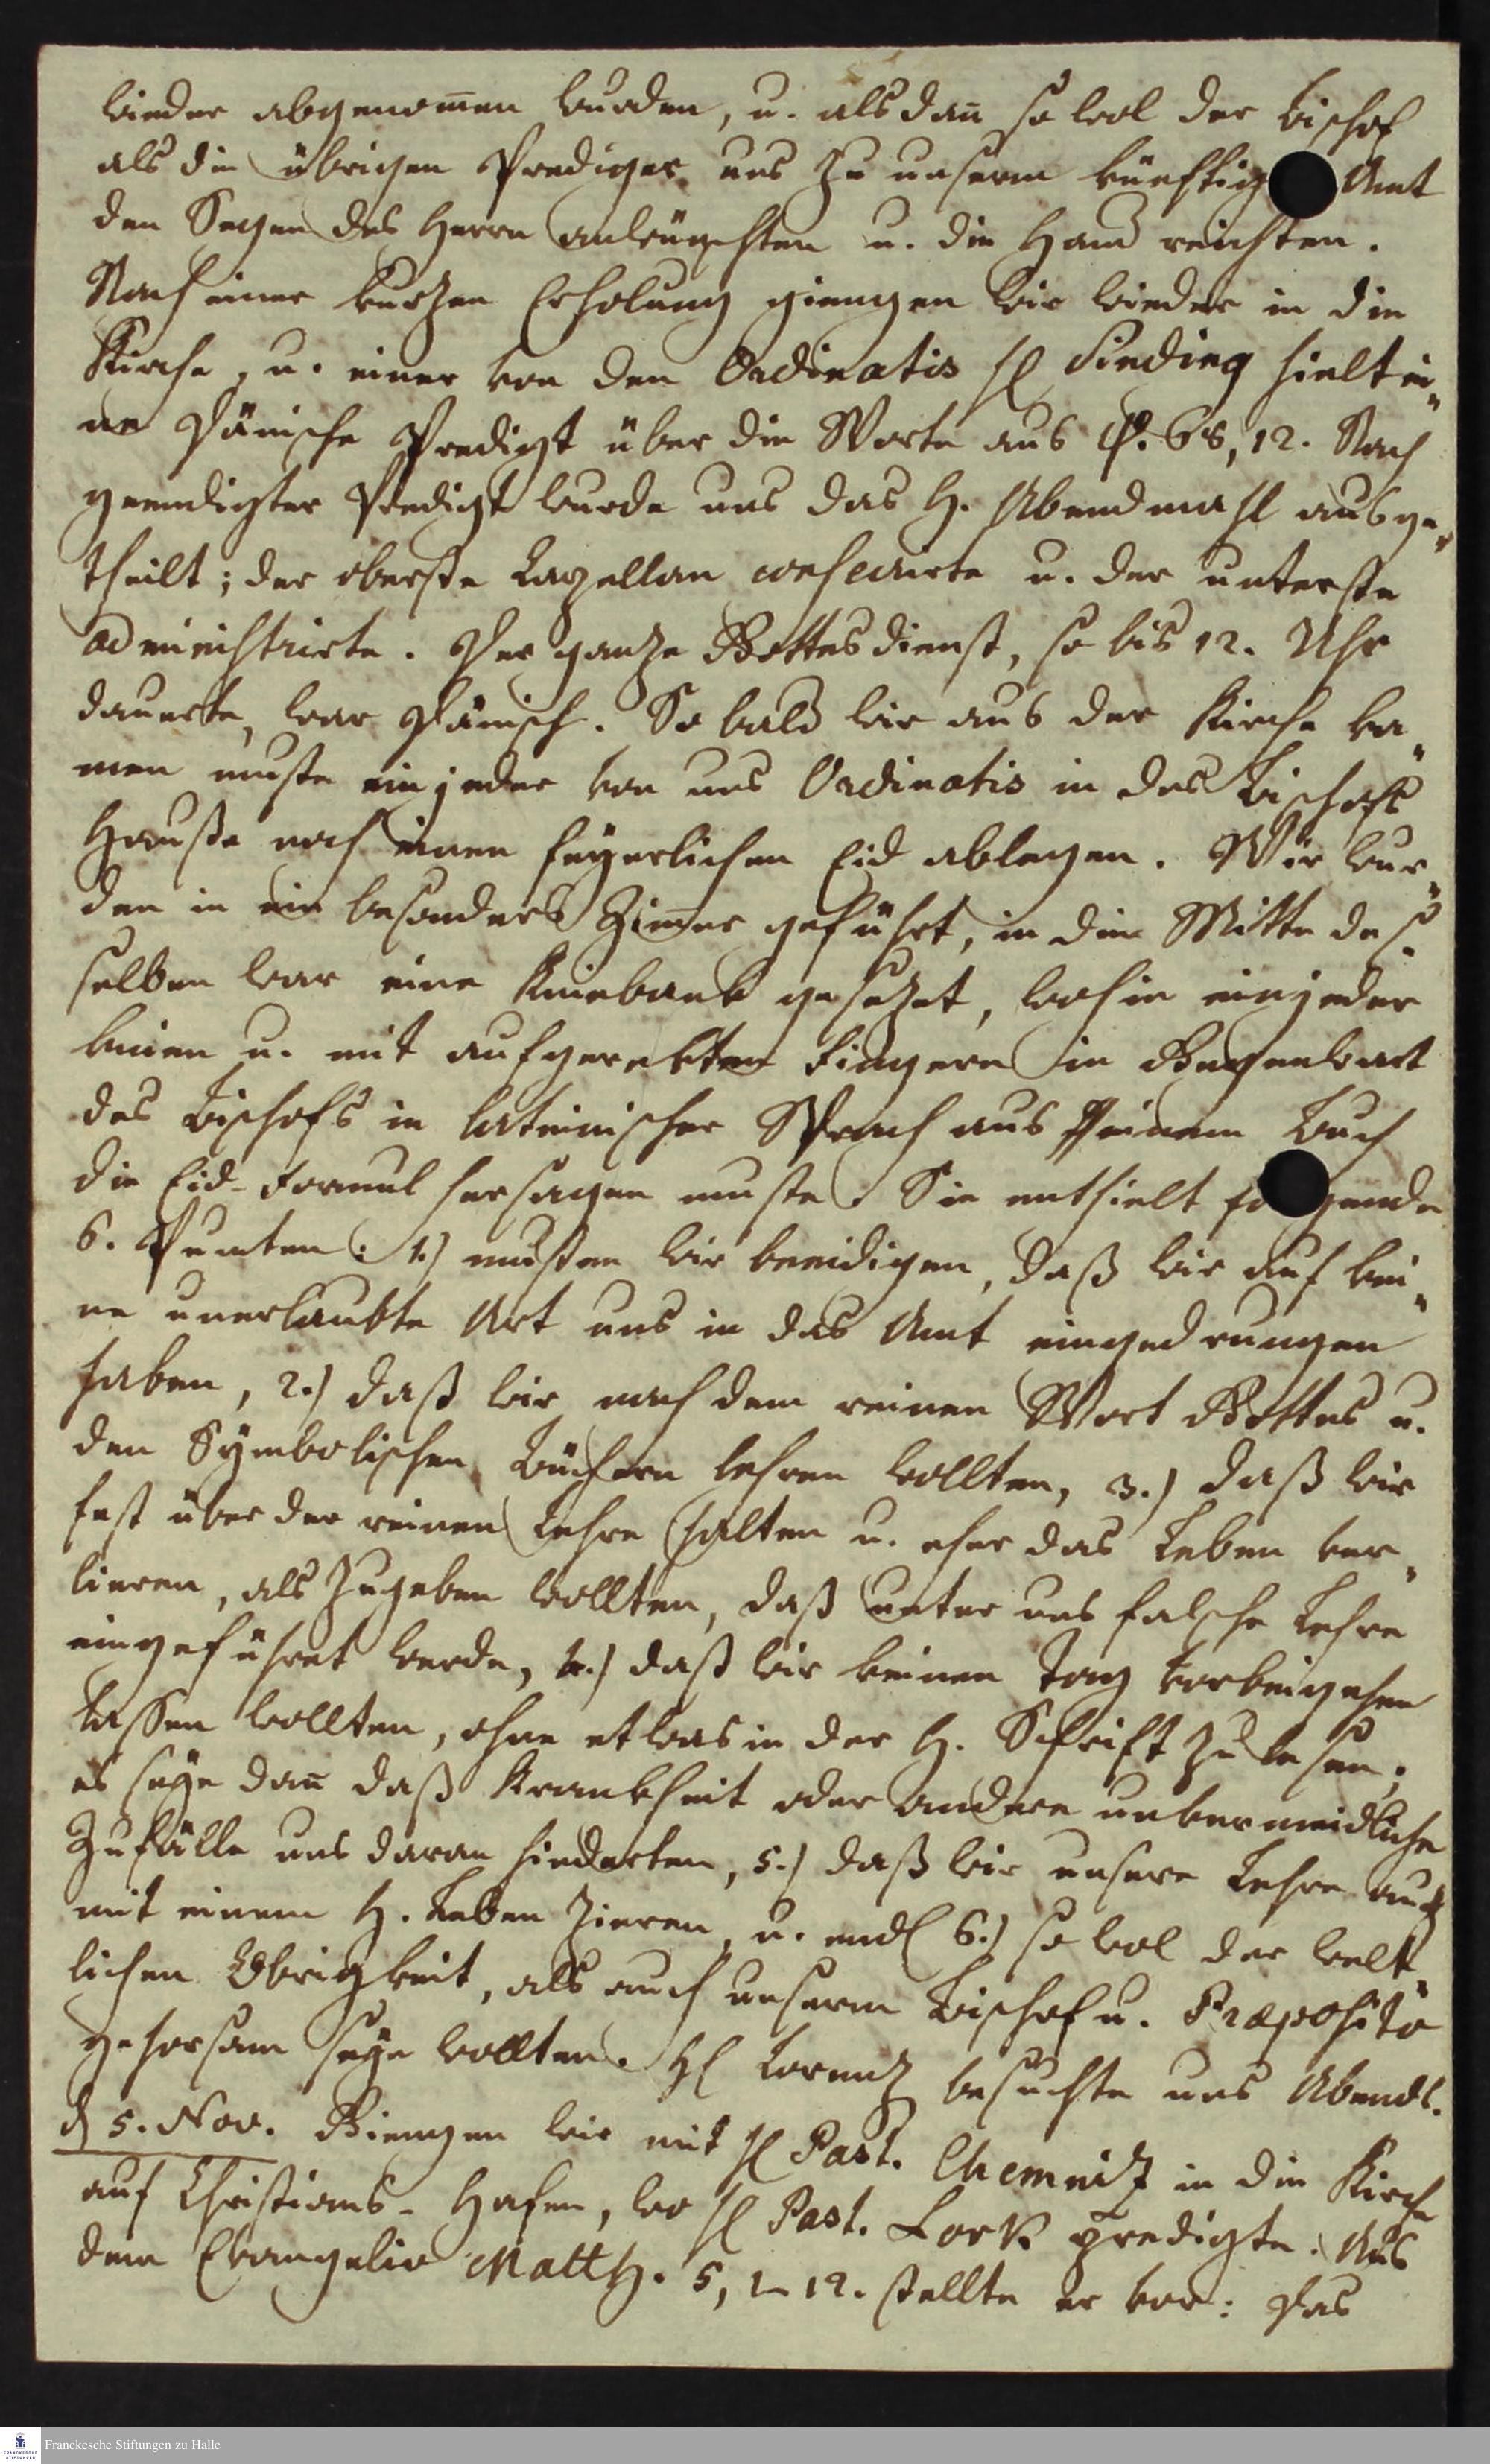 wieder abgenom̅en wurden, u. alsdan̅ so wol der Bischof
als die übrigen Prediger uns zu unserm künftig Amt
den Segen des Herrn anwünschten u. die Hand reichten.
Nach einer kurzen Erholung giengen wir wieder in die
Kirche, u. einer von den Ordinatis H. hielt ei„
ne Dänische Predigt über die Worte aus Ps. 68, 12. Nach
geendigter Predigt wurde uns das H. Abendmahl ausge„
theilt; der oberste Capellan consecrirte u. der unterste
administrirte. Der ganze Gottesdienst, so bis 12. Uhr
dauerte, war Dänisch. So bald wir aus der Kirche ka„
men muste ein jeder von uns Ordinatis in des Bischofs
Hauße noch einen feyerlichen Eid ablegen. Wir wur„
den in ein besonders Zim̅er geführt, in die Mitte des„
selben war eine Kniebank gesezet, wohin ein jeder
knien u. mit aufgerekten Fingern in Gegenwart
des Bischofs in lateinischer Sprach aus einem Buch
die Eid-Formul hersagen muste. Sie enthielt fo gende
6. Puncten: 1.) musten wir beeidigen, daß wir auf kei„
ne unerlaubte Art uns in das Amt eingedrungen
haben, 2.) daß wir nach dem reinen Wort Gottes u.
den Symbolischen Büchern lehren wollten, 3.) daß wir
fest über der reinen Lehre halten u. eher das Leben ver„
lieren, als zugeben wollten, daß unter uns falsche Lehre
eingeführet werde, 4.) daß wir keinen Tag vorbeigehen
lassen wollten, ohne etwas in der H. Schrift zu lesen,
es seye dan̅ daß Krankheit oder andere unvermeidliche
Zufälle uns daran hinderten, 5.) daß wir unsere Lehre auch
mit einem H. Leben zieren, u. endl 6.) so wol der welt„
lichen Obrigkeit, als auch unserm Bischof u. Præposito
gehorsam seyn wollten. H. Lorenz besuchte uns Abends.
d 5. Nov. Giengen wir mit H. Past. Chemniz in die Kirche
auf Christians-Hafen, wo H. Past. Lork predigte. Aus
dem Evangelio Matth. 5, 1-12. stellte er vor: Das
Franckesche Stiftungen zu Halle